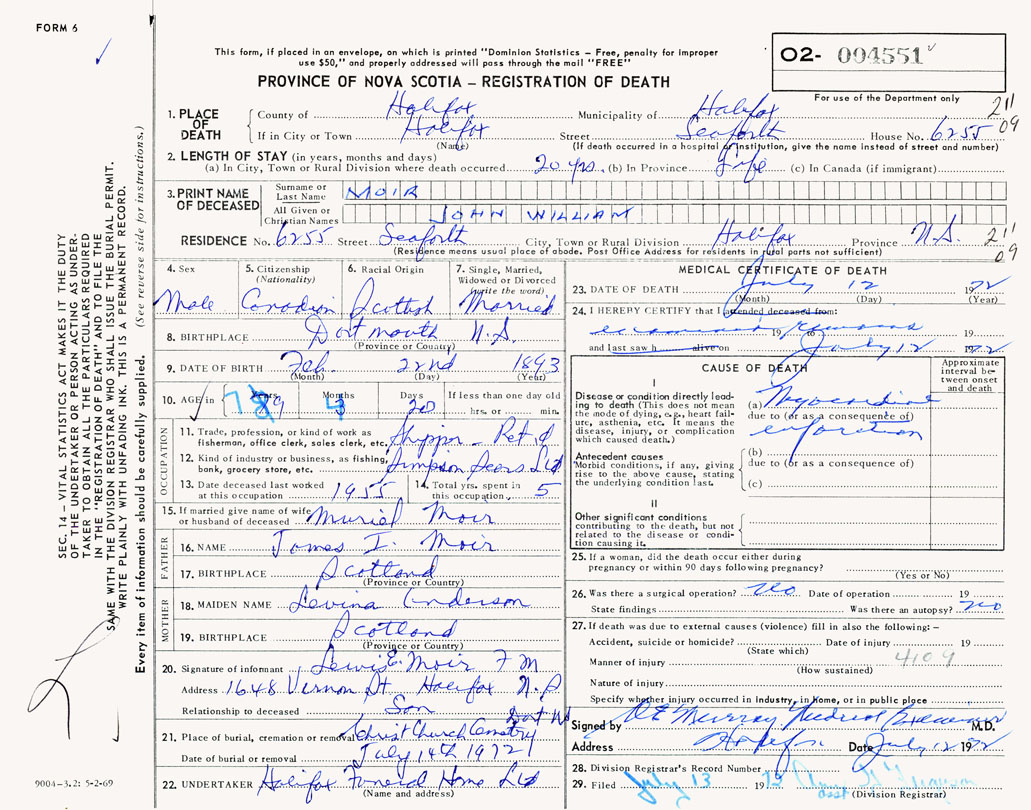 FORM 6
This form, if placed in an envelope, on which is printed "Dominion Statistics – Free, penalty for improper
use $50," and properly addressed will pass through the mail "FREE"
PROVINCE OF NOVA SCOTIA – REGISTRATION OF DEATH
O2- 004551
For use of the Department only
211
09
1. PLACE OF DEATH
County of Halifax Municipality of Halifax
If in City or Town Halifax Street Seaforth House No. 6255
(Name) (If death occurred in a hospital or institution, give the name instead of street and number)
2. LENGTH OF STAY (in years, months and days)
(a) In City, Town or Rural Division where death occurred 20 yrs. (b) In Province Life (c) In Canada (if immigrant)
3. PRINT NAME OF DECEASED
Surname or Last Name MOIR
All Given or Christian Names JOHN WILLIAM
RESIDENCE No. 6255 Street Seaforth City, Town or Rural Division Halifax Province N.S.
211
09
(Residence means usual place of abode. Post Office Address for residents in rural parts not sufficient)
4. Sex
Male
5. Citizenship (Nationality)
Canadian
6. Racial Origin
Scottish
7. Single, Married, Widowed or Divorced (write the word)
Married
8. BIRTHPLACE Dartmouth N.S.
(Province or Country)
9. DATE OF BIRTH Feb. 22nd 1893
(Month) (Day) (Year)
10. AGE in Years 79 Months 4 Days 20 If less than one day old
hrs. or min.
OCCUPATION
11. Trade, profession or kind of work as
fisherman, office clerk, sales clerk, etc. Shipper – Ret'd
12. Kind of industry or business, as fishing,
bank, grocery store, etc. Simpson Sears Ltd
13. Date deceased last worked
at this occupation 1955
14. Total yrs. spent in
this occupation 5
15. If married give name of wife
or husband of deceased Muriel Moir
FATHER
16. NAME James I. Moir
17. BIRTHPLACE Scotland
(Province or Country)
MOTHER
18. MAIDEN NAME Levina Anderson
19. BIRTHPLACE Scotland
(Province or Country)
20. Signature of informant Lewis E. Moir
Address 1648 Vernon St. Halifax N.S
Relationship to deceased Son
21. Place of burial, cremation or removal Christ Church Cemetry Dart NS
Date of burial or removal July 14th 1972
22. UNDERTAKER Halifax Funeral Home Ltd
(Name and address)
MEDICAL CERTIFICATE OF DEATH
23. DATE OF DEATH July 12 1972
(Month) (Day) (Year)
24. I HEREBY CERTIFY that I attended deceased from:
examined 19 to remains 19
and last saw h alive on July 12 1972
CAUSE OF DEATH
Approximate interval between onset and death
I
Disease or condition directly leading
to death (This does not mean
the mode of dying, e.g., heart failure,
asthenia, etc. It means the
disease, injury, or complication
which caused death.)
(a) Myocardial
due to (or as a consequence of)
infarction
Antecedent causes
Morbid conditions, if any, giving
rise to the above cause, stating
the underlying condition last.
(b)
due to (or as a consequence of)
(c)
II
Other significant conditions
contributing to the death, but not
related to the disease or condition
causing it.
25. If a woman, did the death occur either during
pregnancy or within 90 days following pregnancy?
(Yes or No)
26. Was there a surgical operation? no Date of operation 19
State findings Was there an autopsy? no
27. If death was due to external causes (violence) fill in also the following:–
Accident, suicide or homicide? Date of injury 19
(State which)
Manner of injury 4109
(How sustained)
Nature of injury
Specify whether injury occurred in Industry, in Home, or in public place
Signed by Murray Medical Examiner M.D.
Address Halifax Date July 12 1972
28. Division Registrar's Record Number
29. Filed July 13 1972
asst (Division Registrar)
SEC. 14 – VITAL STATISTICS ACT MAKES IT THE DUTY
OF THE UNDERTAKER OR PERSON ACTING AS UNDERTAKER
TO OBTAIN ALL THE PARTICULARS REQUIRED
IN THE "REGISTRATION OF DEATH" AND TO FILE THE
SAME WITH THE DIVISION REGISTRAR WHO SHALL ISSUE THE BURIAL PERMIT.
WRITE PLAINLY WITH UNFADING INK. THIS IS A PERMANENT RECORD.
Every item of information should be carefully supplied. (See reverse side for instructions.)
9004–3.2: 5-2-69